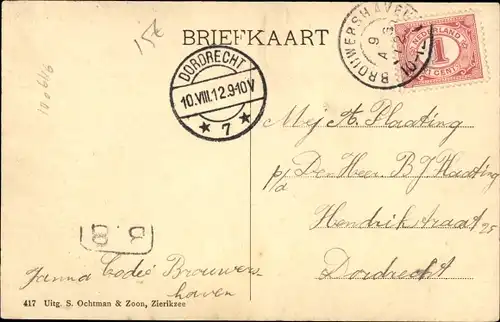 15c
BRIEFKAART
BROUWERSHAVEN
NEDERLAND
1
CENT
DORDRECHT
10.VIII.12.9-10V
7
Mej A. Plaating
p/a Den Heer B J Plaating
Hendrikstraat 25
Dordrecht
B B
Janna Codié Brouwers
haven
417 Uitg. S. Ochtman & Zoon, Zierikzee